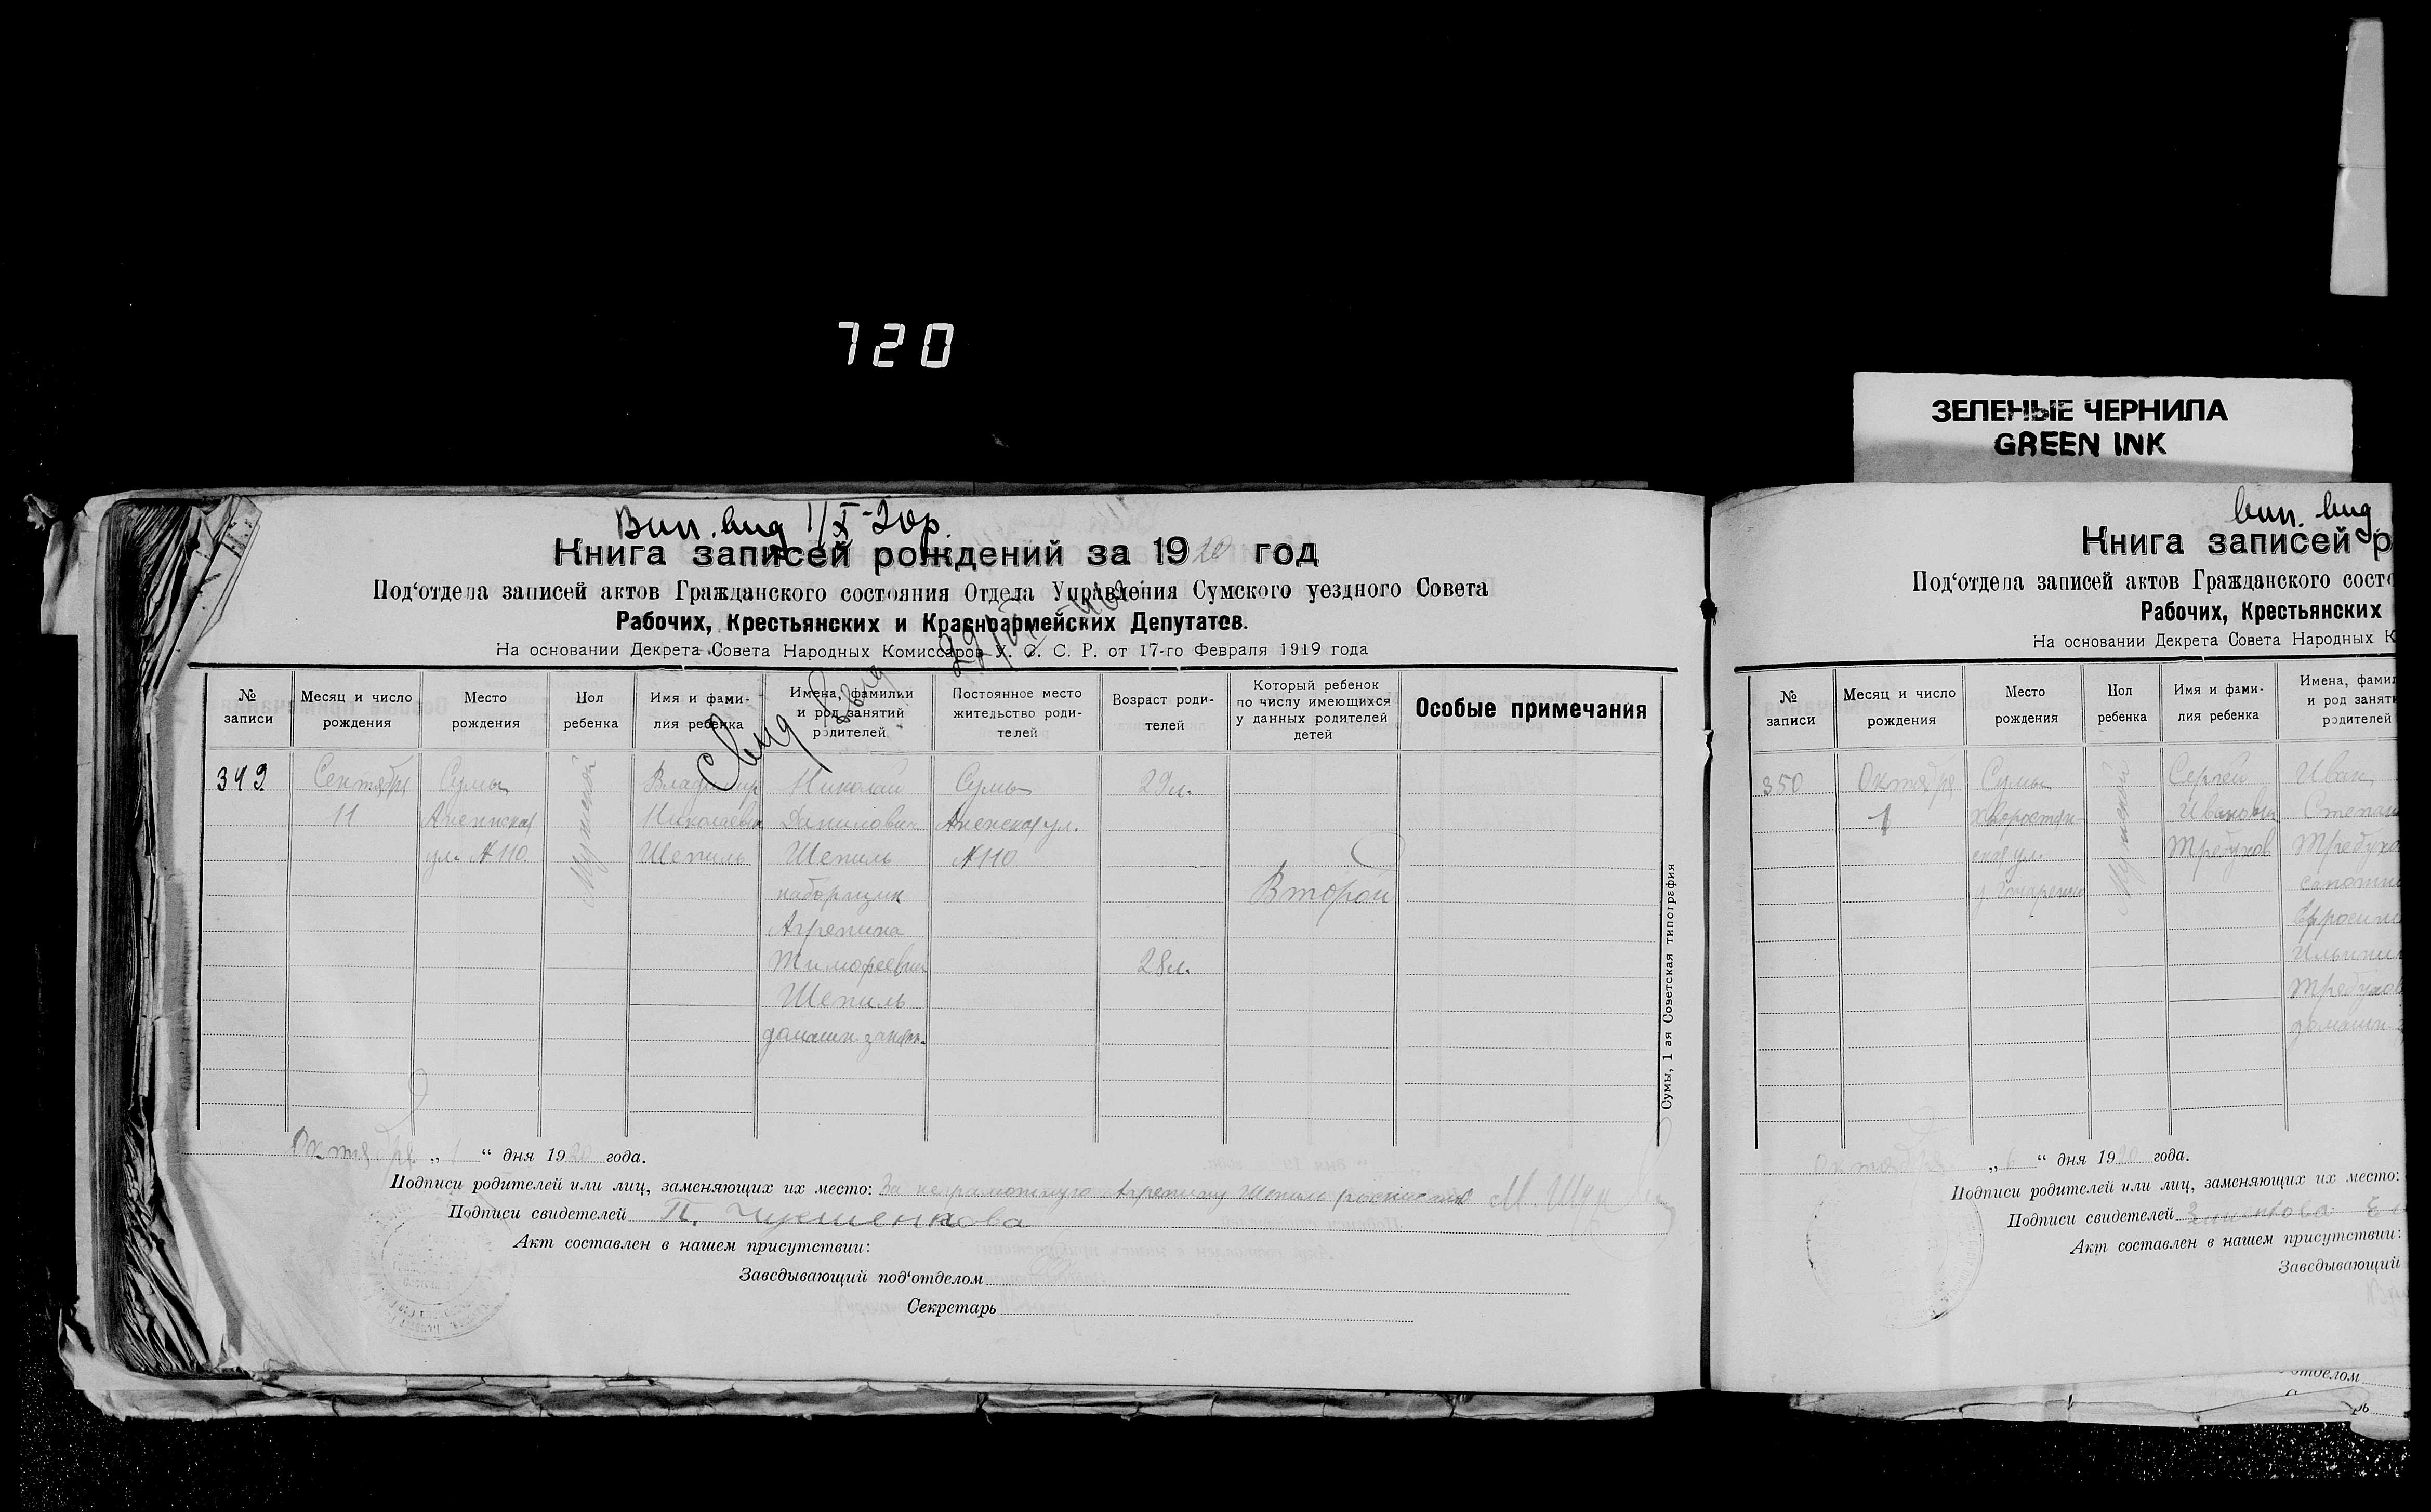 720
ЗЕЛЕНЫЕ ЧЕРНИЛА
GREEN INK
Вип. вид 1/X-20р.
Книга записей рождений за 1920 год
Под‘отдела записей актов Гражданского состояния Отдела Управления Сумского уездного Совета
Рабочих, Крестьянских и Красноармейских Депутатов.
На основании Декрета Совета Народных Комиссаров У. С. С. Р. от 17-го Февраля 1919 года
№ записи
Месяц и число рождения
Место рождения
Пол ребенка
Имя и фами-
лия ребенка
Имена, фамильи
и род занятий
родителей
Постоянное место
жительство роди-
телей
Возраст роди-
телей
Который ребенок
по числу имеющихся
у данных родителей
детей
Особые примечания
349
Сентября
11
Сумы
Аненская
ул. №110
Мужской
Владимир
Николаевич
Шепиль
Николай
Данилович
Шепиль
наборщик
Агрепина
Тимофеевна
Шепиль
домашн. занят.
Сумы
Аненская ул.
№110
29 л.
28 л.
Второй
Сумы, 1 ая Советская типография
Октября „ 1 “ дня 1920 года.
Подписи родителей или лиц, заменяющих их место: За неграмотную Агрепину Шепиль росписался М.
Подписи свидетелей П.
Акт составлен в нашем присутствии:
Заведывающий под‘отделом
Секретарь
вип. вид
Книга записей р
Под‘отдела записей актов Гражданского состо
Рабочих, Крестьянских
На основании Декрета Совета Народных К
№ записи
Месяц и число рождения
Место рождения
Пол ребенка
Имя и фами-
лия ребенка
Имена, фамил
и род заняти
родителей
350
Октября
1
Сумы
ская ул.
Мужской
Сергей
Иванович
Требухов
Иван
Степан
Требухо
сапожни
Ефросин
Ильинич
Требухов
домашн.
Октября „ 6 “ дня 1920 года.
Подписи родителей или лиц, заменяющих их место:
Подписи свидетелей
Акт составлен в нашем присутствии:
Заведывающий
отделом
рь